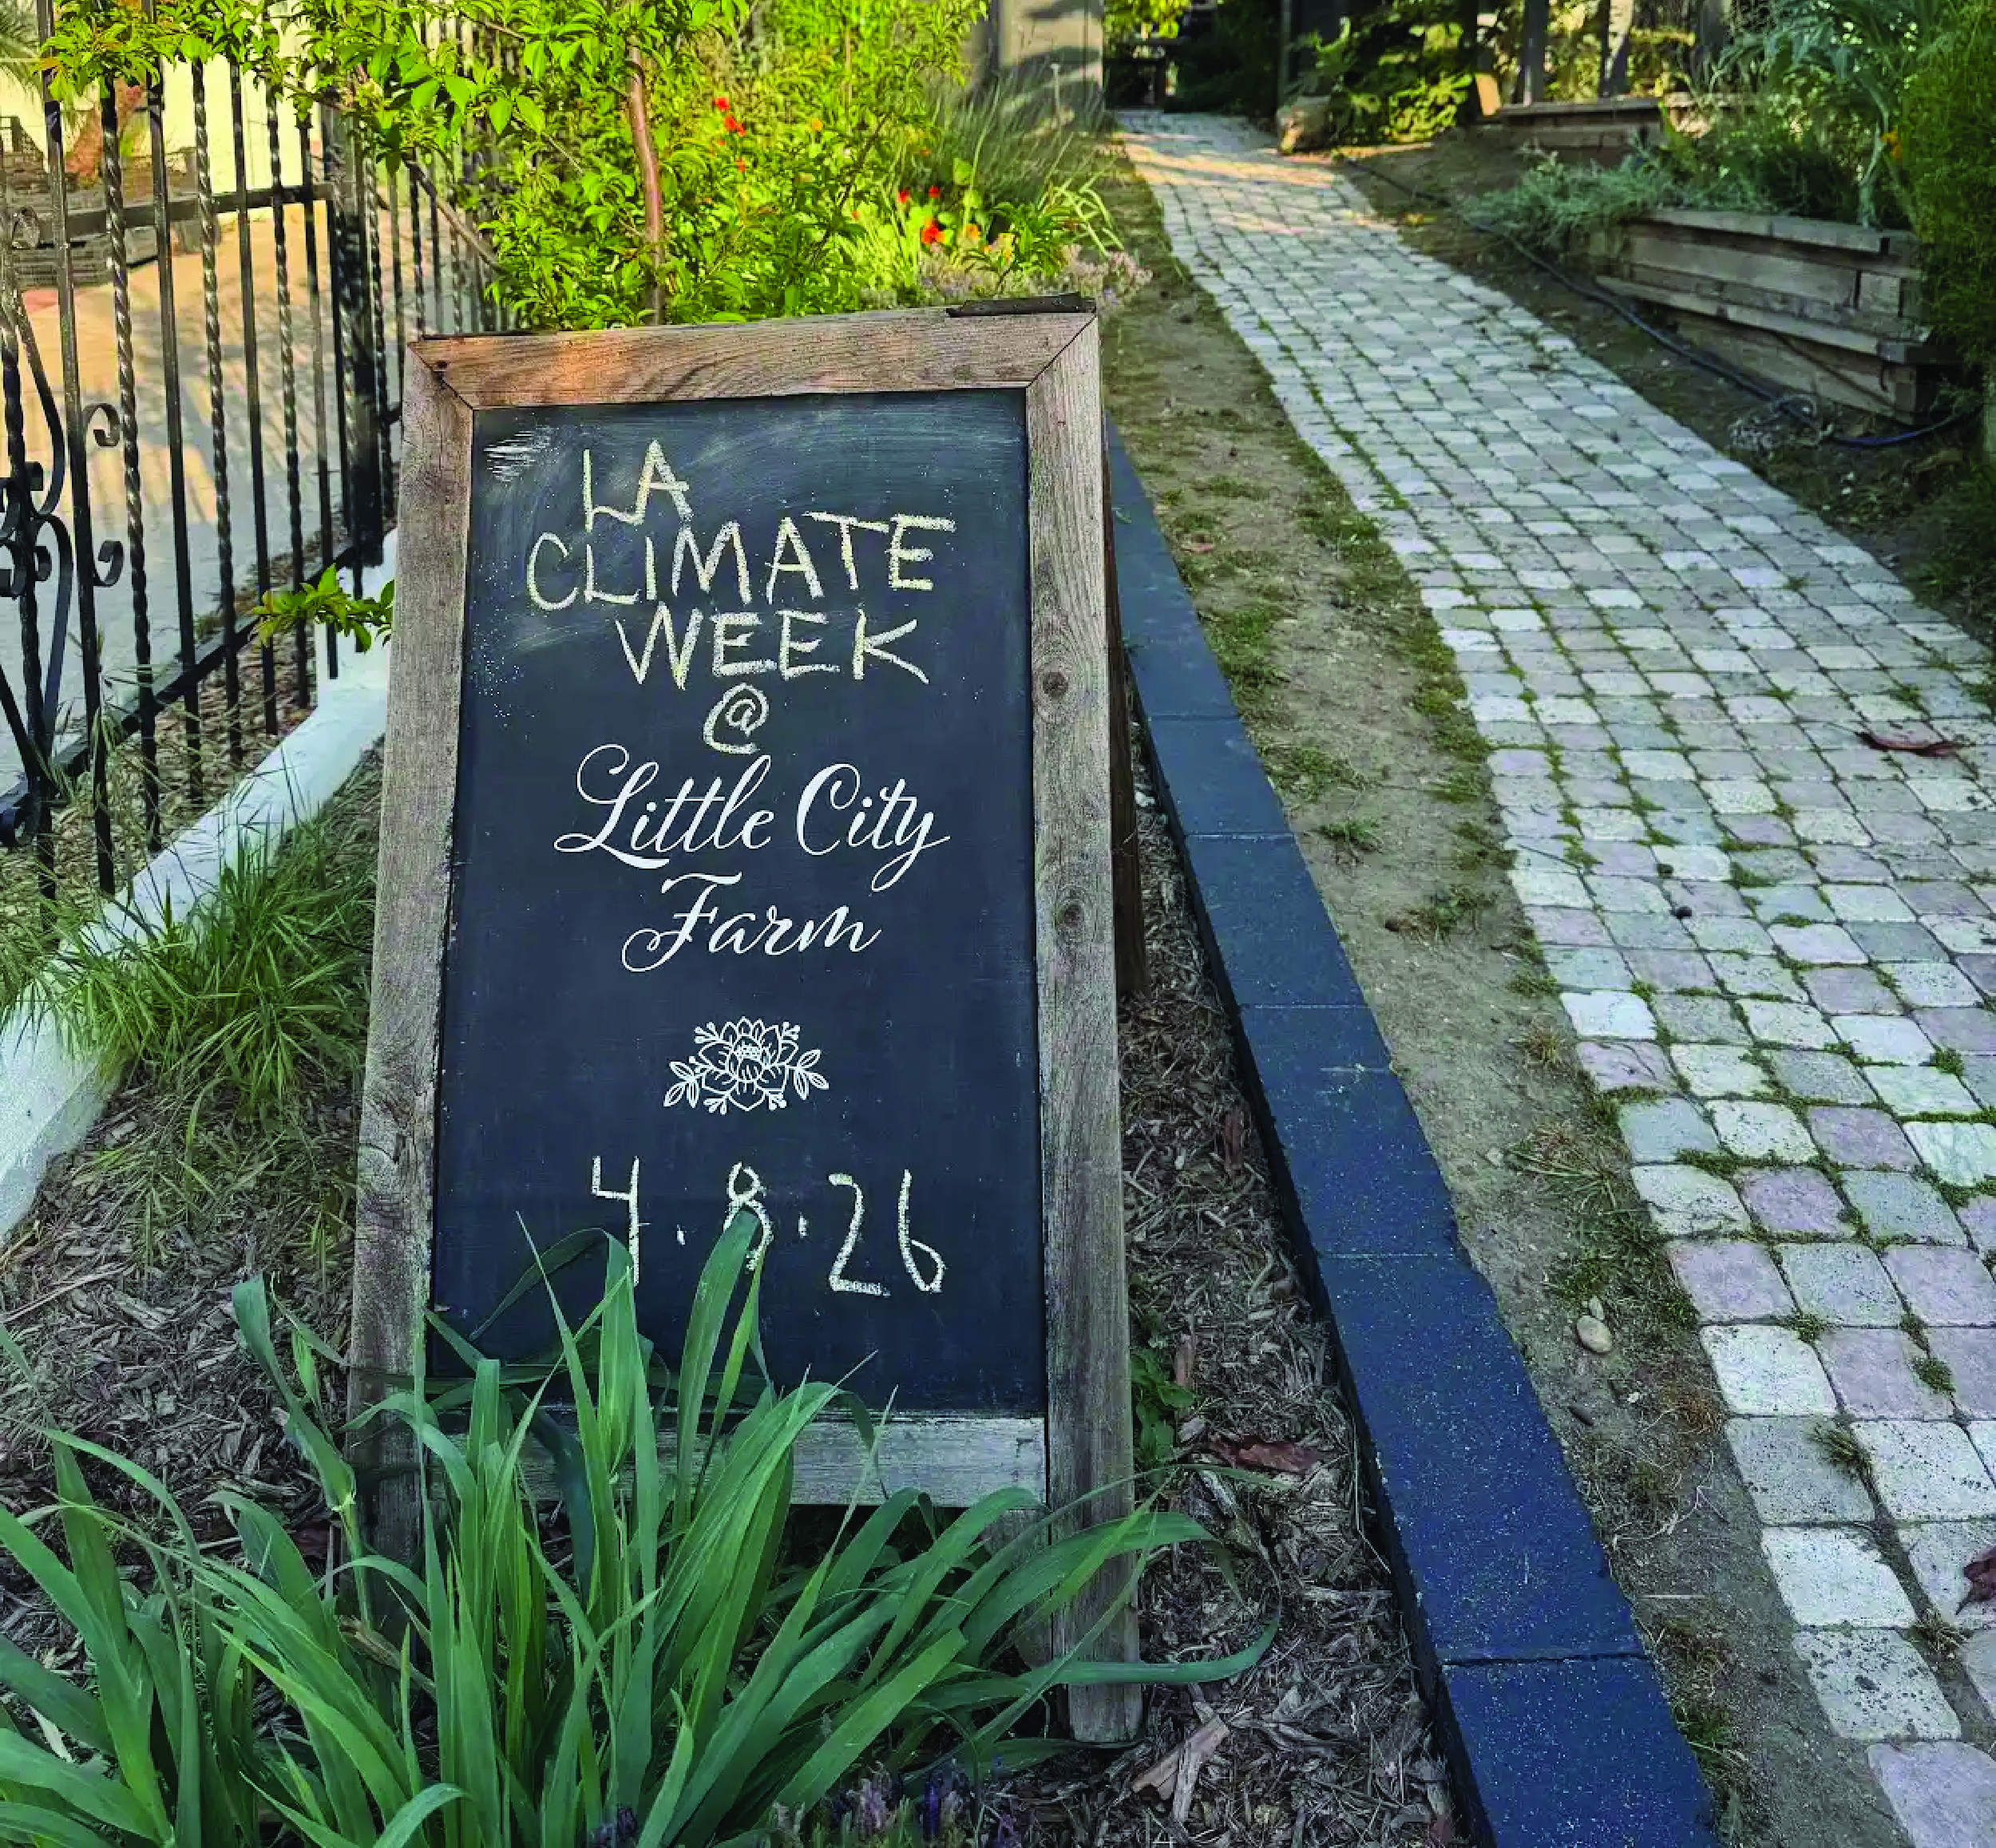 LA
CLIMATE
WEEK
@
Little City
Farm
4.8.26